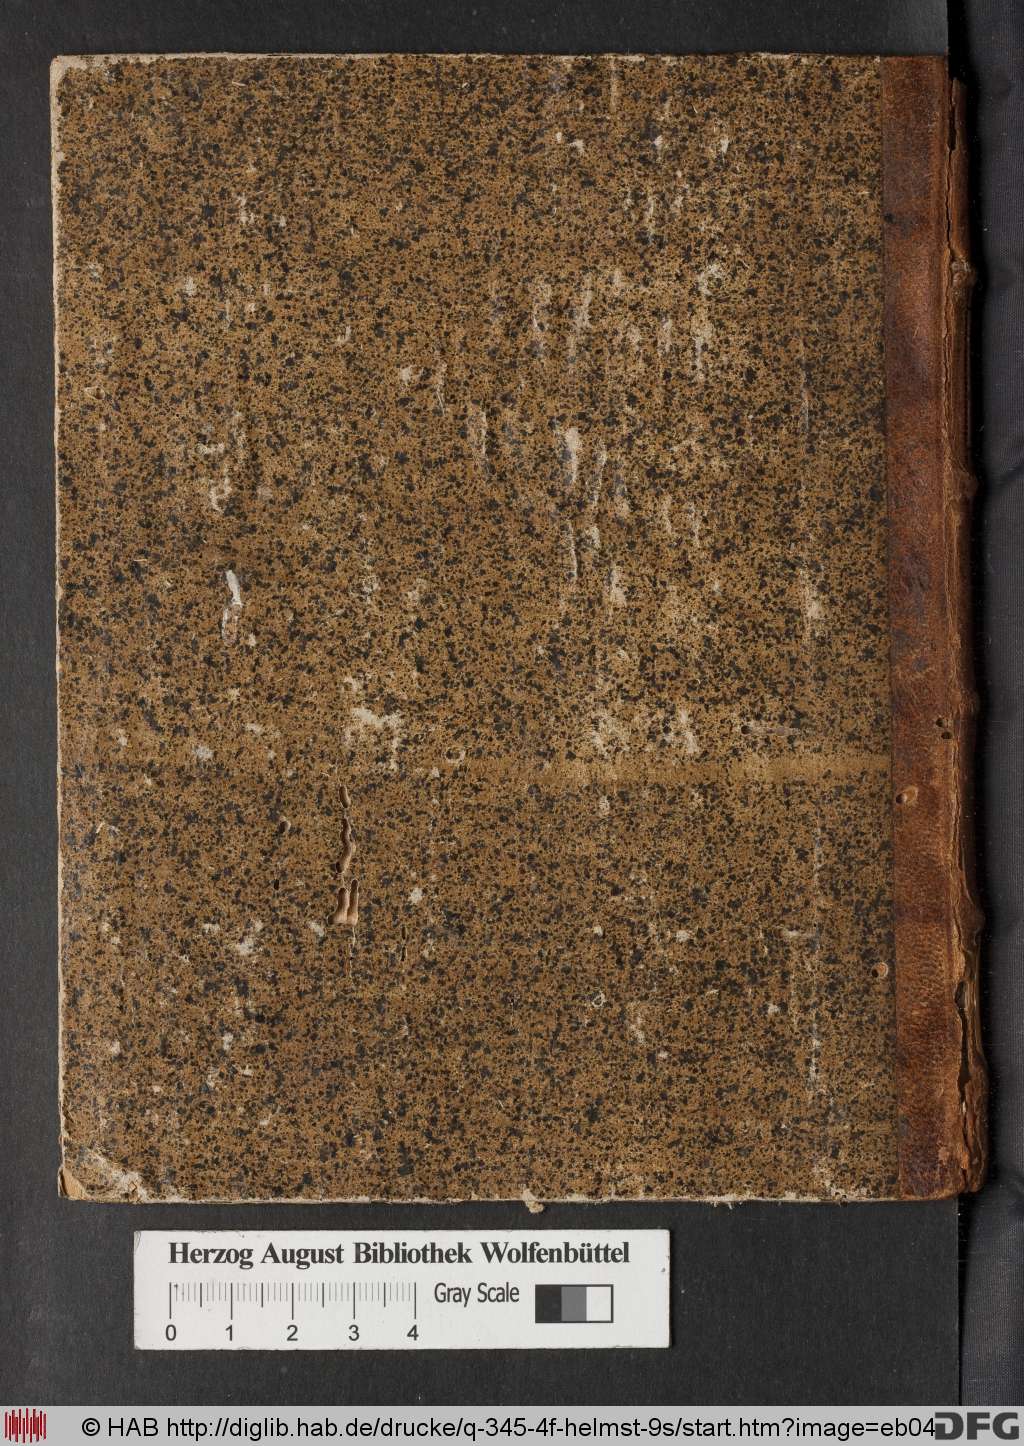 Herzog August Bibliothek Wolfenbüttel
Gray Scale
0 1 2 3 4
© HAB http://diglib.hab.de/drucke/q-345-4f-helmst-9s/start.htm?image=eb04
DFG